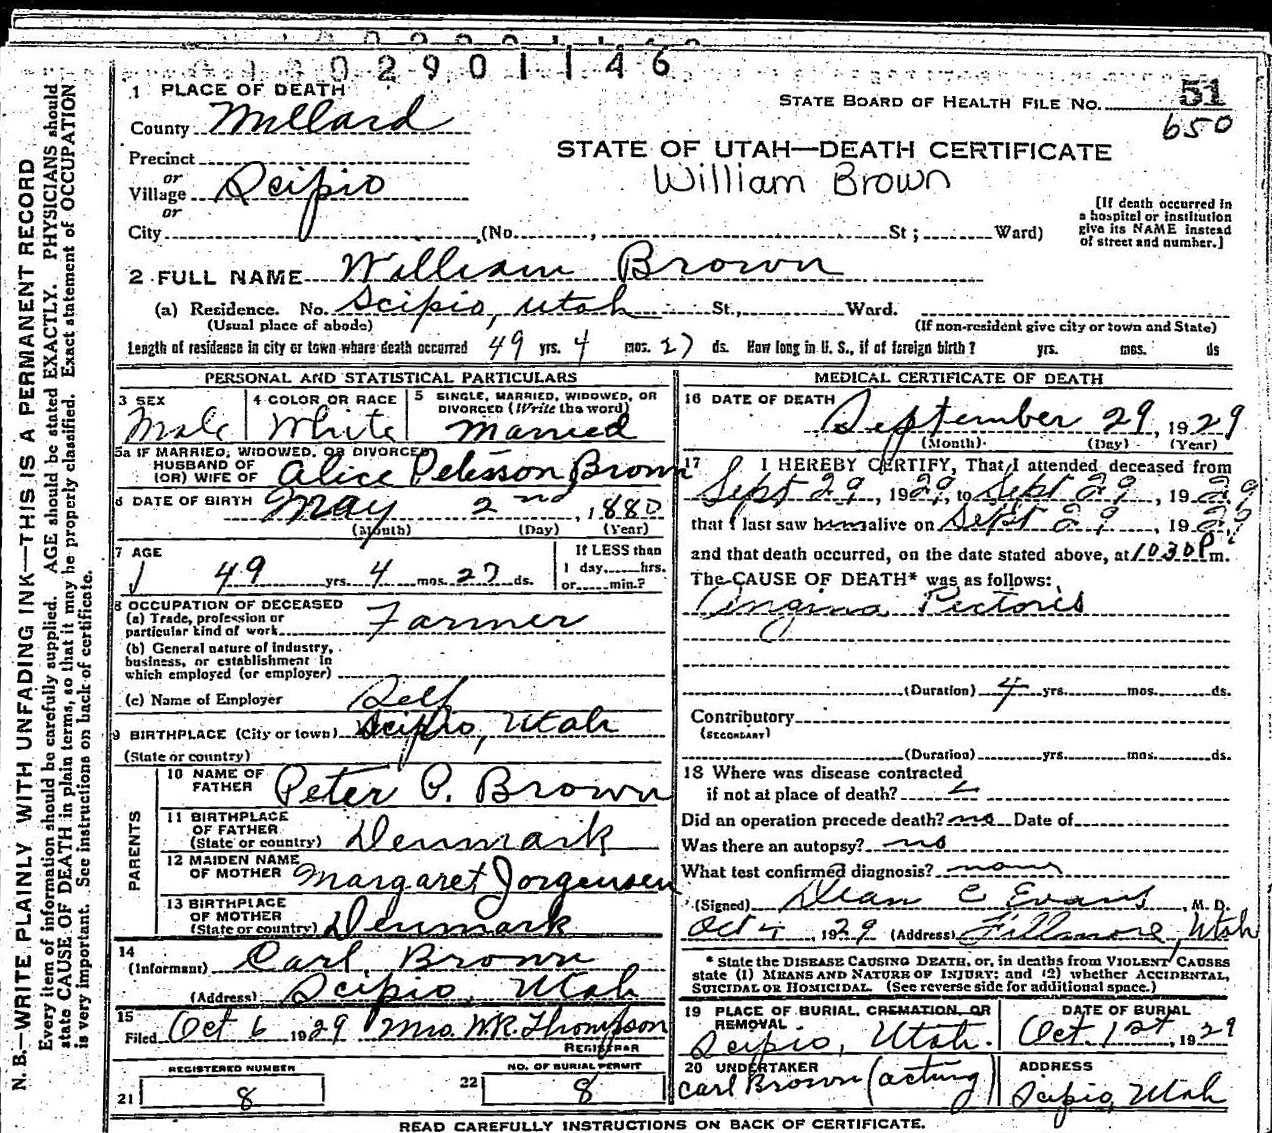 N. B.—WRITE PLAINLY WITH UNFADING INK—THIS IS A PERMANENT RECORD
Every item of information should be carefully supplied. AGE should be stated EXACTLY. PHYSICIANS should
state CAUSE OF DEATH in plain terms, so that it may be properly classified. Exact statement of OCCUPATION
is very important. See instructions on back of certificate.
0 2 9 0 1 1 4 6
1 PLACE OF DEATH
STATE BOARD OF HEALTH FILE NO. 51
650
County Millard
STATE OF UTAH—DEATH CERTIFICATE
William Brown
Precinct
or
Village Scipio
or
City (No. , St ; Ward)
[If death occurred in
a hospital or institution
give its NAME instead
of street and number.]
2 FULL NAME William Brown
(a) Residence. No. Scipio, Utah St., Ward.
(Usual place of abode) (If non-resident give city or town and State)
Length of residence in city or town where death occurred 49 yrs. 4 mos. 27 ds. How long in U. S., if of foreign birth? yrs. mos. ds
PERSONAL AND STATISTICAL PARTICULARS
3 SEX
Male
4 COLOR OR RACE
White
5 SINGLE, MARRIED, WIDOWED, OR
DIVORCED (Write the word)
Married
5a IF MARRIED, WIDOWED, OR DIVORCED
HUSBAND OF
(OR) WIFE OF Alice Petersson Brown
6 DATE OF BIRTH May 2nd, 1880
(Month) (Day) (Year)
7 AGE
49 yrs. 4 mos. 27 ds.
If LESS than
1 day, hrs.
or min.?
8 OCCUPATION OF DECEASED
(a) Trade, profession or
particular kind of work Farmer
(b) General nature of industry,
business, or establishment in
which employed (or employer)
(c) Name of Employer Self
9 BIRTHPLACE (City or town) Scipio, Utah
(State or country)
PARENTS
10 NAME OF
FATHER Peter P. Brown
11 BIRTHPLACE
OF FATHER
(State or country) Denmark
12 MAIDEN NAME
OF MOTHER Margaret Jorgensen
13 BIRTHPLACE
OF MOTHER
(State or country) Denmark
14
(Informant) Carl Brown
(Address) Scipio, Utah
15
Filed Oct 6 1929 Mrs. W.R. Thompson
REGISTRAR
REGISTERED NUMBER
21 8
NO. OF BURIAL PERMIT
22 8
MEDICAL CERTIFICATE OF DEATH
16 DATE OF DEATH
September 29, 1929
(Month) (Day) (Year)
17 I HEREBY CERTIFY, That I attended deceased from
Sept 29, 1929, to Sept 29, 1929
that I last saw him alive on Sept 29, 1929
and that death occurred, on the date stated above, at 10 30 P m.
The CAUSE OF DEATH* was as follows:
Angina Pectoris
(Duration) 4 yrs. mos. ds.
Contributory
(SECONDARY)
(Duration) yrs. mos. ds.
18 Where was disease contracted
if not at place of death?
Did an operation precede death? no Date of
Was there an autopsy? no
What test confirmed diagnosis? none
(Signed) Dean C Evans, M. D.
Oct 4 1929 (Address) Fillmore, Utah
* State the DISEASE CAUSING DEATH, or, in deaths from VIOLENT CAUSES
state (1) MEANS AND NATURE OF INJURY; and (2) whether ACCIDENTAL,
SUICIDAL OR HOMICIDAL. (See reverse side for additional space.)
19 PLACE OF BURIAL, CREMATION, OR
REMOVAL
Scipio, Utah.
DATE OF BURIAL
Oct. 1st, 1929
20 UNDERTAKER
Carl Brown (acting)
ADDRESS
Scipio, Utah
READ CAREFULLY INSTRUCTIONS ON BACK OF CERTIFICATE.